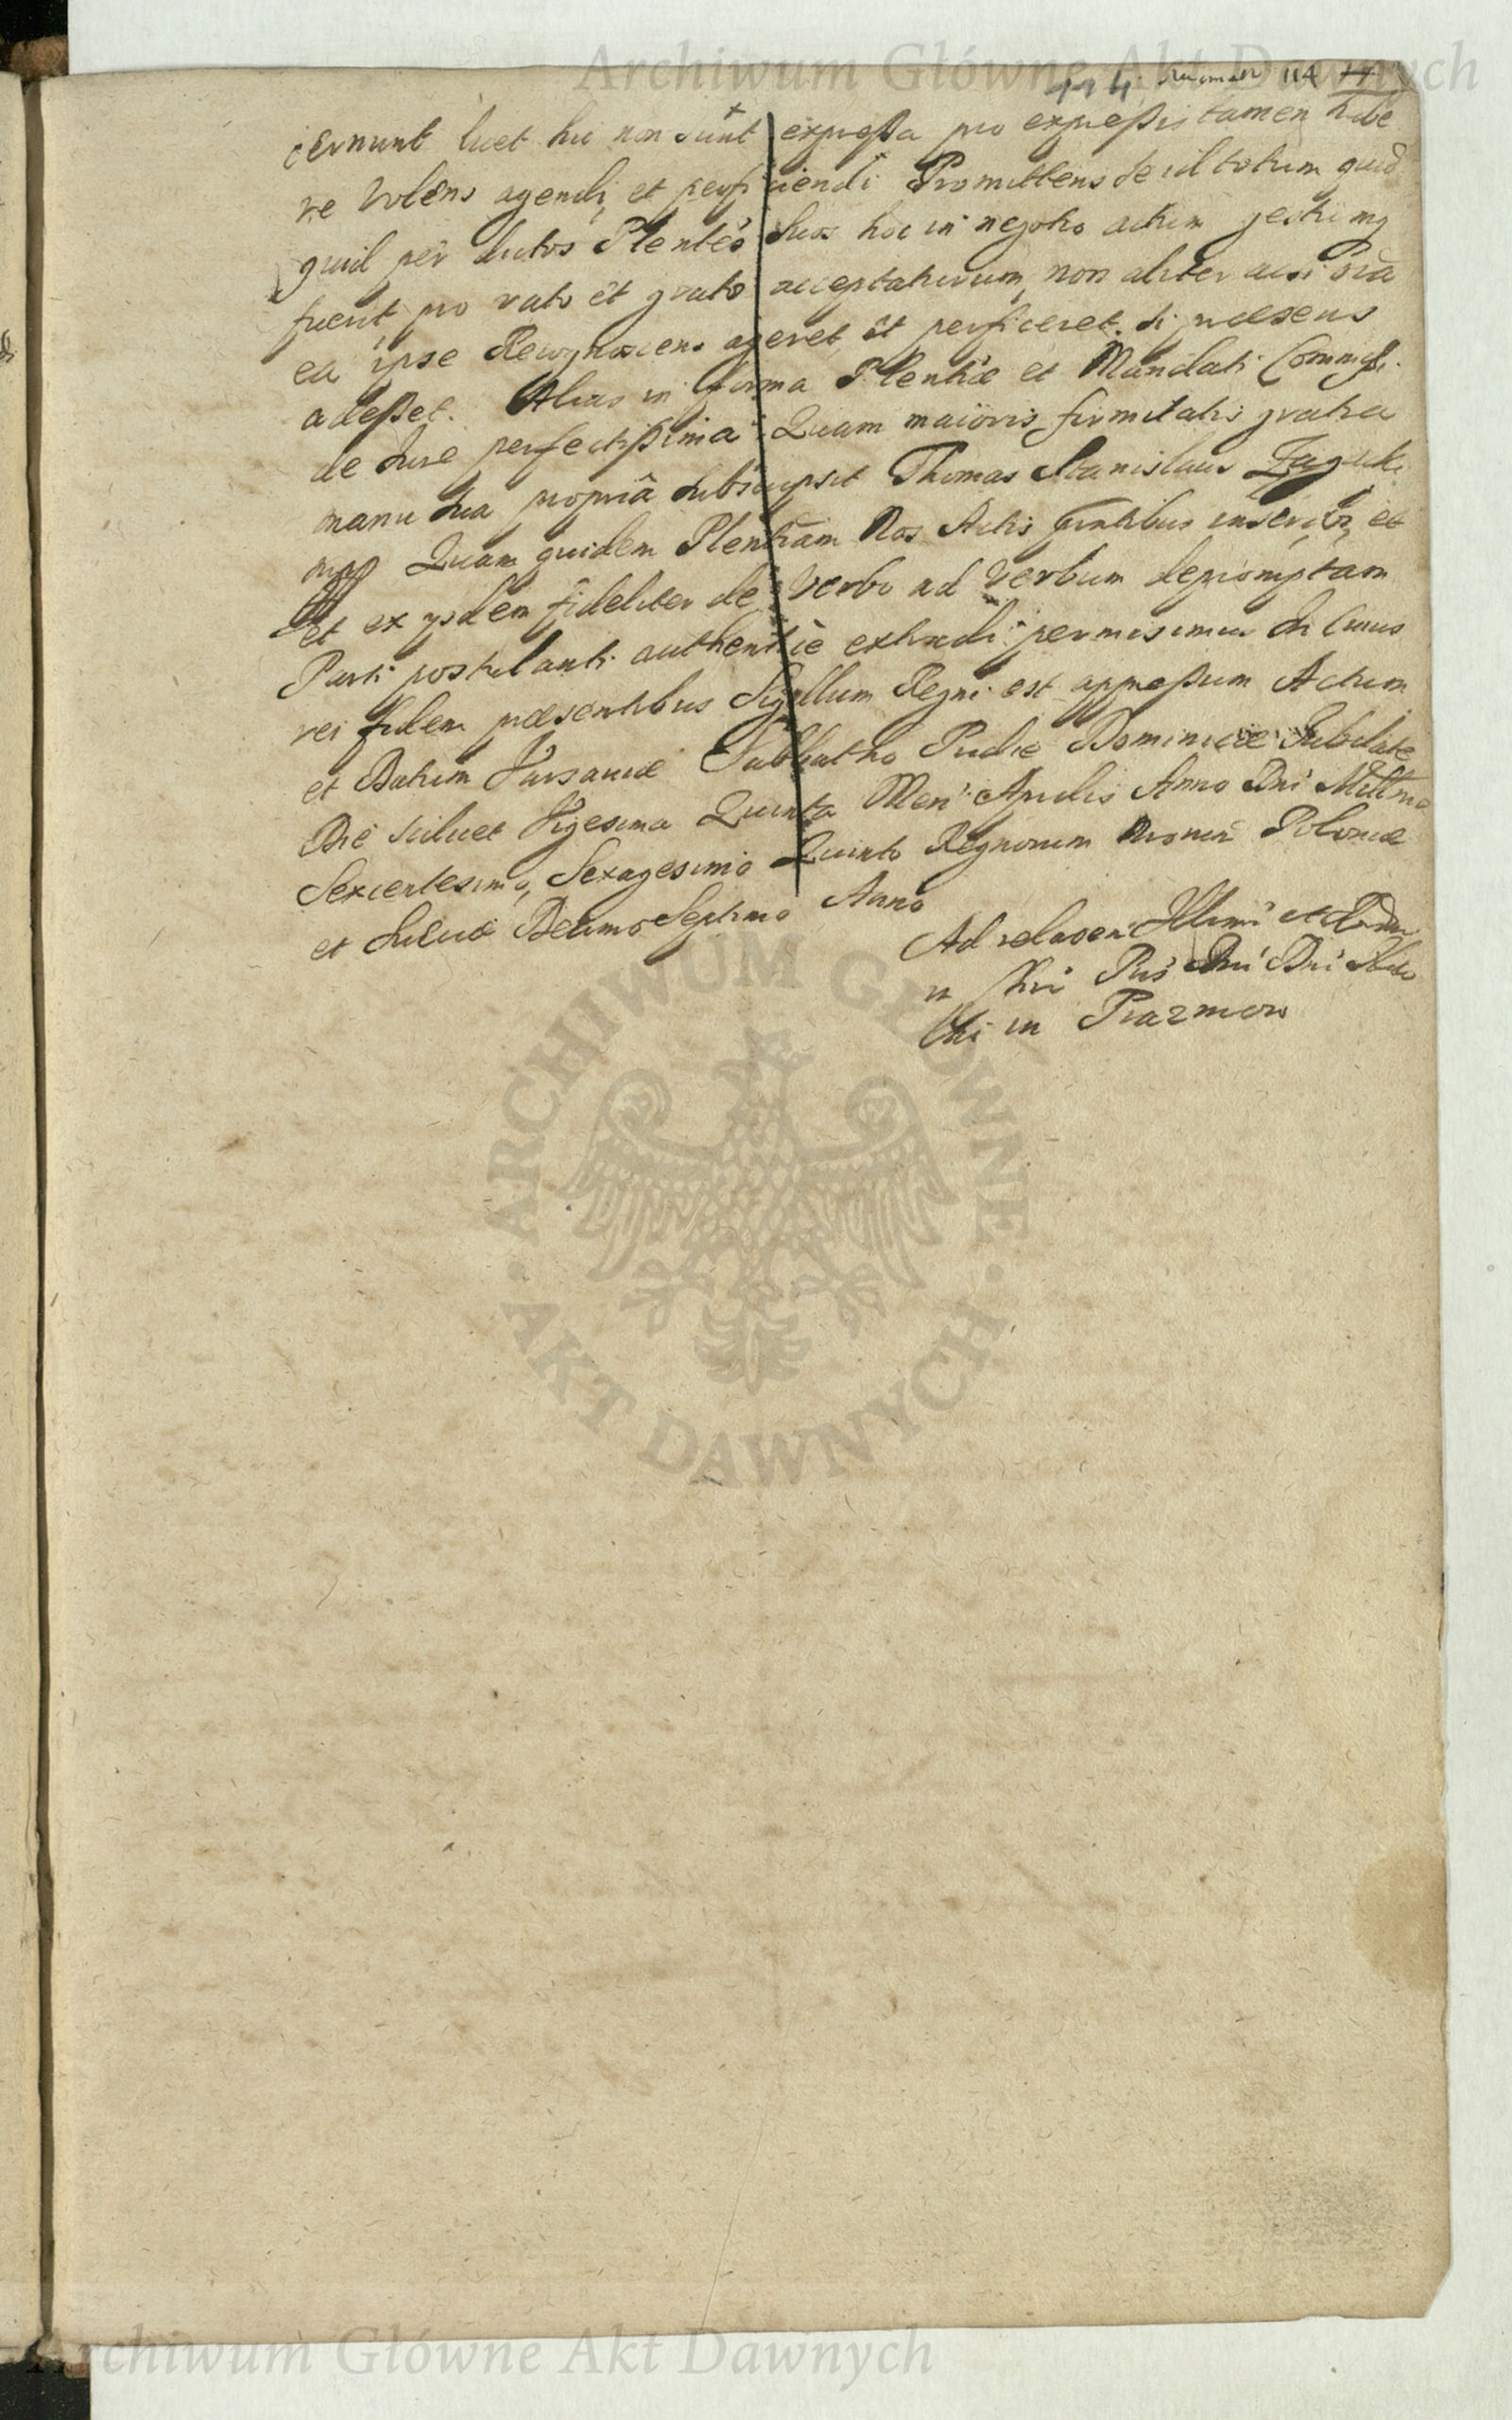 Archiwum Główne Akt Dawnych
114 114 17
cernunt licet hic non sunt expressa pro expressis tamen habe
re volens agendi et perficiendi Promittens se id totum quid
quid per dictos Plentes suos hoc in negotio actum gestumq
fuerit pro rato et grato accepturum, non aliter ac si oia
ea ipse Recognoscens ageret et perficeret si praesens
adesset. Alias in forma Plentiae et Mandati Commissi
de Jure perfectissima Quam maioris firmitatis gratia
manu sua propria subscripsit Thomas Stanislaus
mp Quam quidem Plentiam Nos Actis pntibus inscribi et
et ex ysdem fideliter de verbo ad verbum depromptam
Parti postulanti authentice extradi permisimus In Cuius
rei fidem praesentibus Sigillum Regni est appressum Actum
et Datum Varsaviae Sabbatho Pridie Dominicae Jubilate
Die scilicet Vigesima Quinta Men Aprilis Anno Dni Millmo
Sexcentesimo Sexagesimo Quinto Regnorum Nrorum Poloniae
et Sueciae Decimo Septimo Anno
Ad relaoem Illmi et Rndmi
in Chri Pris Dni Dni Nico
lai in Prazmow
ARCHIWUM GŁÓWNE
· AKT DAWNYCH ·
Archiwum Główne Akt Dawnych